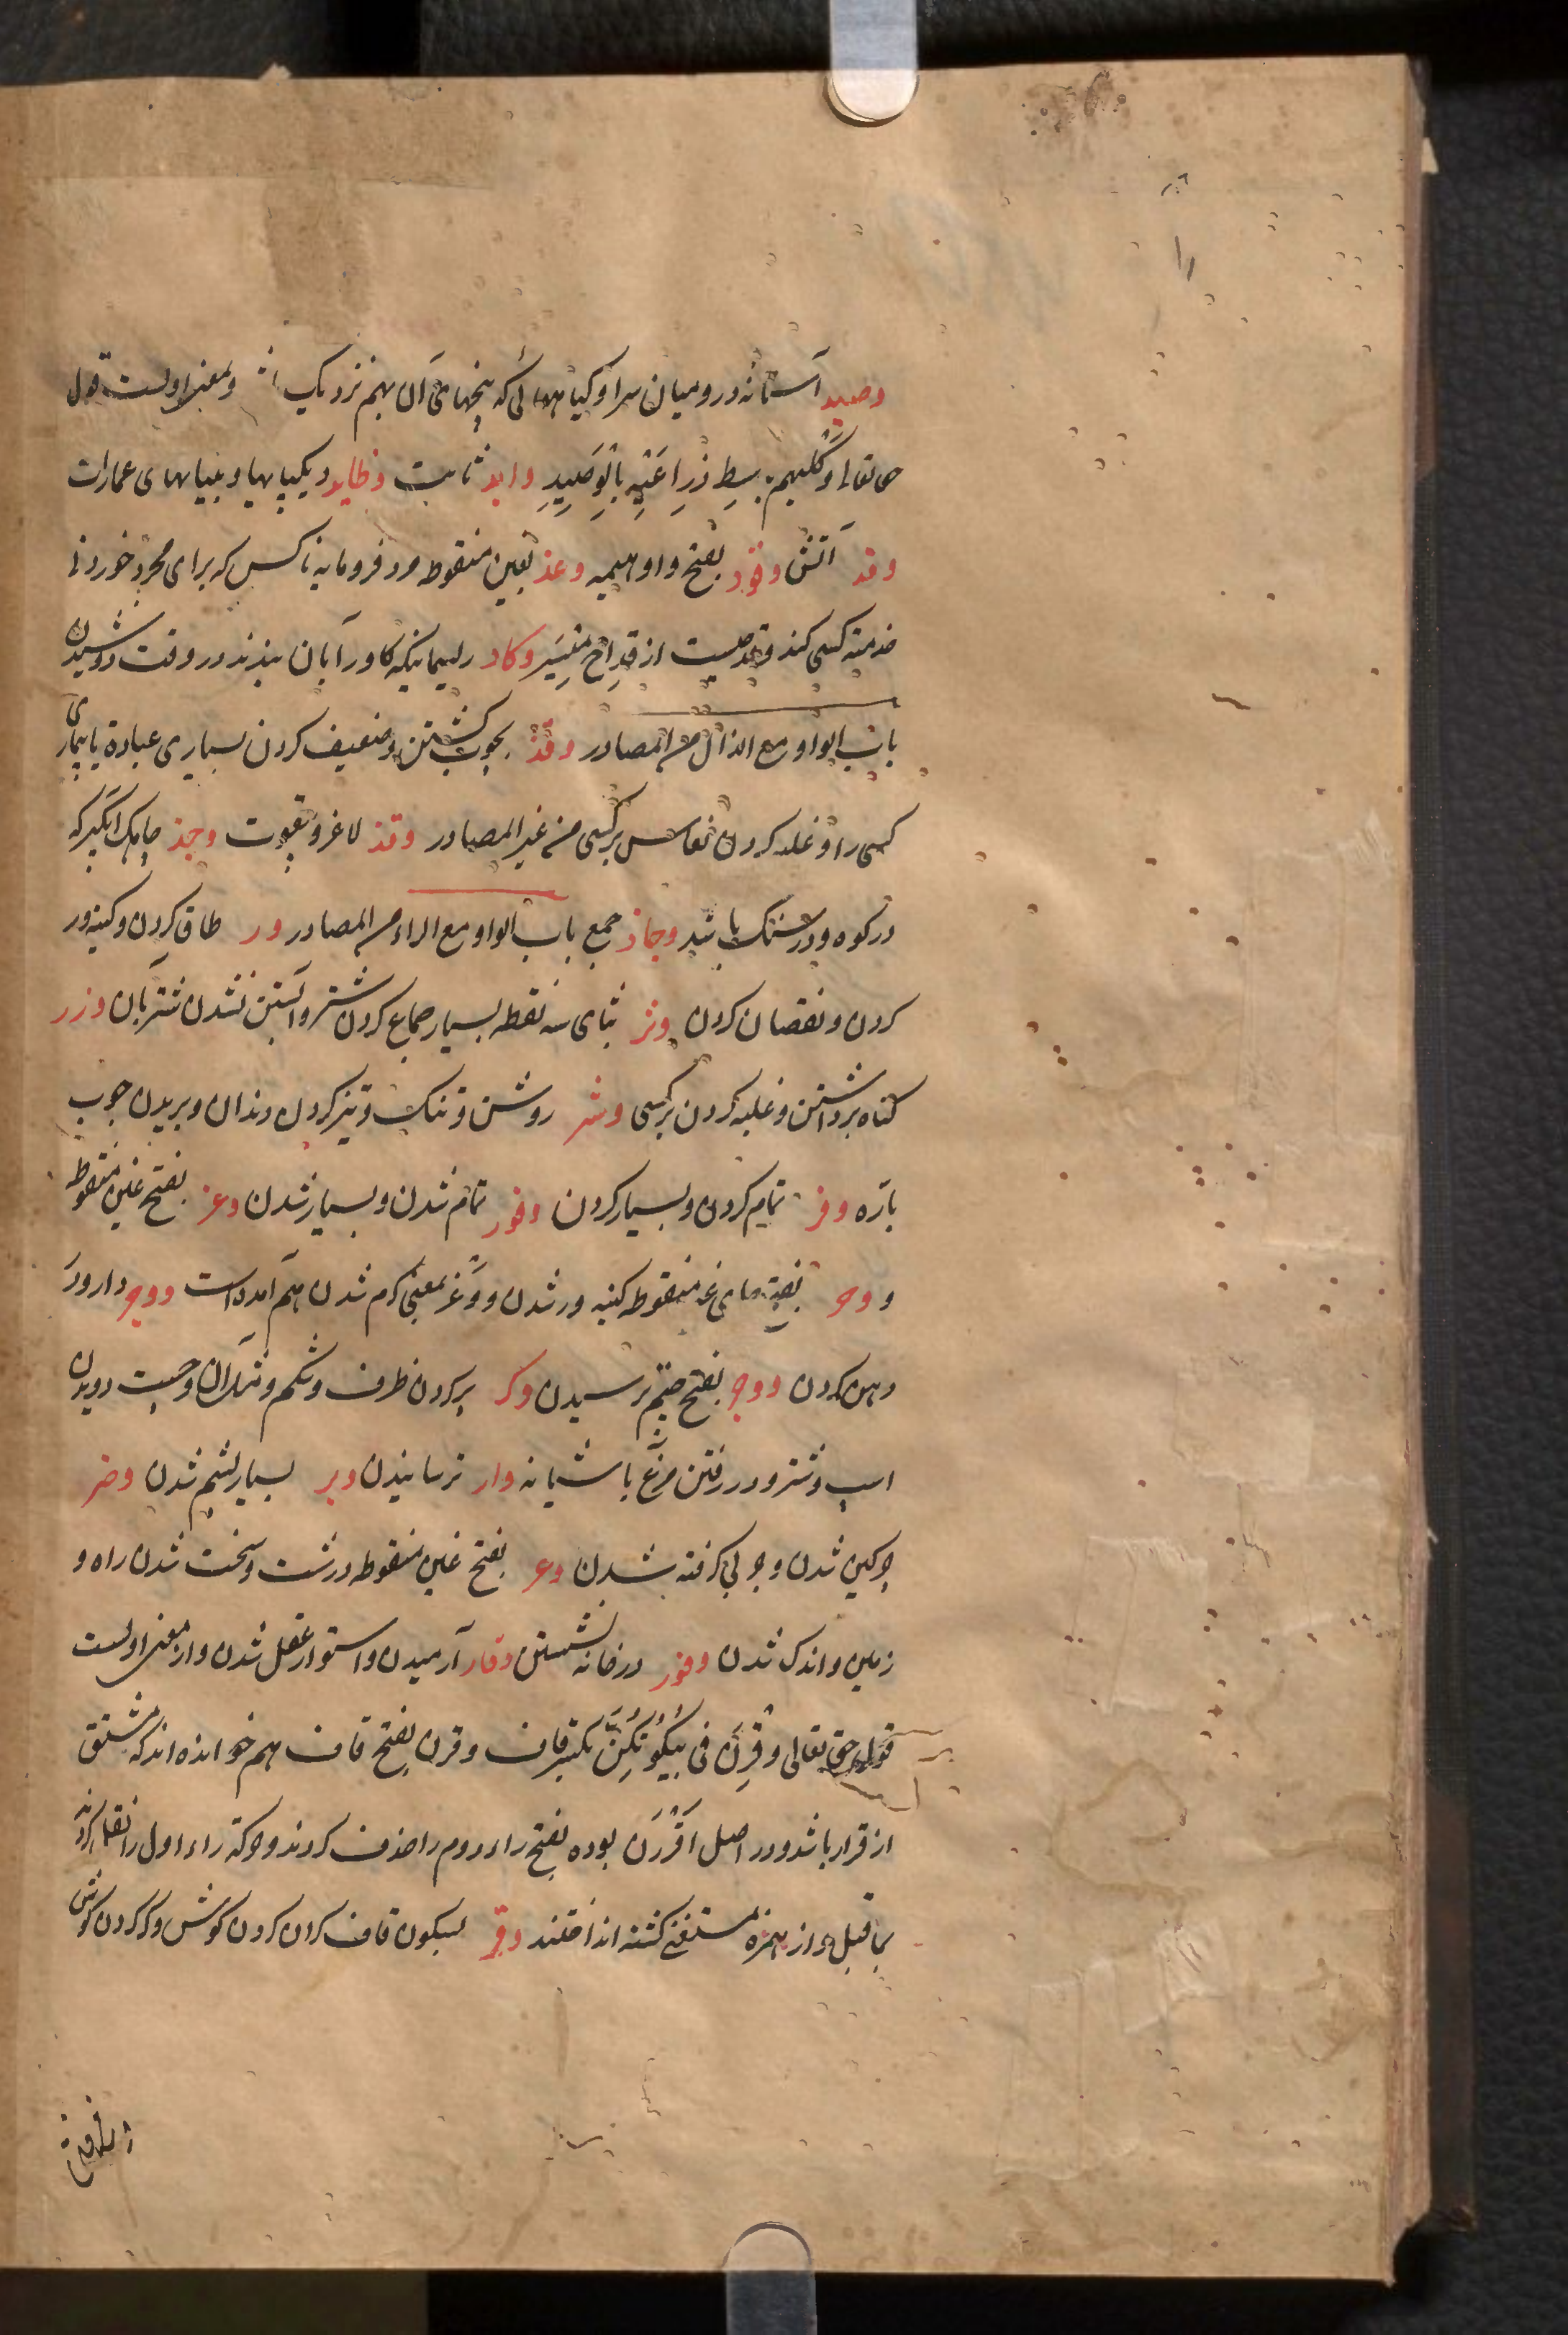 وصید آستانه در و میان سرا و کیاهها ئی که بیخهای آن بهم نزدیک باشد و بمعنی اولست قول
حق تعالی وَکَلبهم باسِطٌ ذِراعَیْهِ بِالْوَصِیدِ وابد ثابت وظاید دیکپایها و بنیانهای عمارات
وقد آتش وقود بفتح واو هیمه وغد بغین منقوط مرد فرومایه ناکس که برای مجرد خوردنی
خدمت کسی کند و قدحیست از قِداح مَیْسِر وکاد ریسمانیکه کاو را بان ببندند در وقت دوشیدن
باب الواو مع الذال من المصادر وقذ بچوب کشتن و ضعیف کردن بیماری عبادة یا بیماری
کسی را و غلبه کردن نعاس بر کسی من غیر المصادر وقذ لاغر و بیقوت وجذ جایک ابکیر که
در کوه و در سنک باشد وجاذ جمع باب الواو مع الراء من المصادر ور طاق کردن و کینه ور
کردن و نقصان کردن وثر بثای سه نقطه بسیار جماع کردن شتر و آبستن نشدن شتر بآن وزر
کناه برداشتن و غلبه کردن بر کسی وشر روشن و تنک و تیز کردن دندان و بریدن چوب
باره وفر تمام کردن و بسیار کردن وفور تمام شدن و بسیار شدن وغر بفتح غین منقوطه
و وحر بفتح حای غیر منقوطه کینه ور شدن و وَغر بمعنی کرم شدن هم آمده است ووجر دارو در
دهن کردن ووجر بفتح جیم ترسیدن وکر پر کردن ظرف و شکم و مانند آن و جست دویدن
اسپ و شتر و در رفتن مرغ باشیانه وار ترسانیدن وبر بسیار پشم شدن وضر
چرکین شدن و چربی کرفته شدن وعر بفتح غین منقوطه درشت و سخت شدن راه و
زمین و اندک شدن وقور در خانه نشستن وقار آرمیدن و استوار عقل شدن و از معنی اولست
قول حق تعالی وَقِرنَ فی بُیُوتِکُنَّ بکسر قاف و قرن بفتح قاف هم خوانده اند که مشتق
از قرار باشد و در اصل اقْرَرنَ بوده بفتح راء دوم را حذف کردند و حرکة راء اول را نقل کردند
بما قبل و از همزه مستغنی کشته انداختند وقر بسکون قاف کران کردن کوش و کر کردن کوش